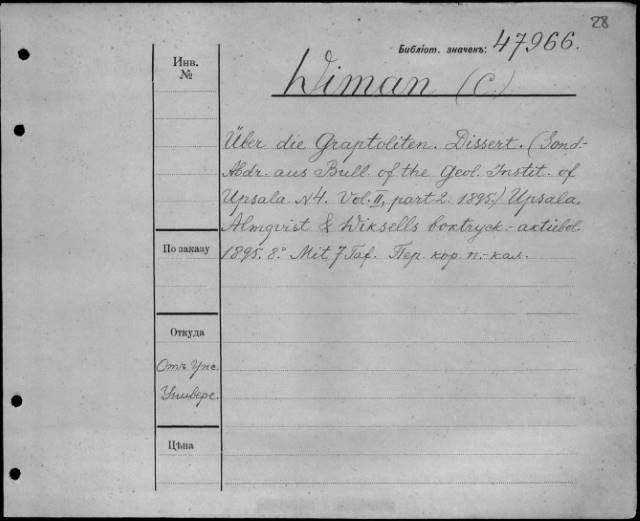 28
Библіот. значенъ: 47966.
Инв. №
Wiman (C.)
Über die Graptoliten. Dissert. (Sond.-
Abdr. aus Bull. of the Geol. Instit. of
Upsala N4. Vol. II, part 2. 1895.) Upsala,
Almqvist & Wiksells boktryck.-aktiebol.
1895. 8.° Mit 7 Taf. Пер. кор п.-кал.
По заказу
Откуда
Отъ Упс.
Универс.
Цѣна